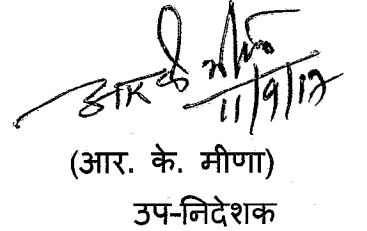 आर के मीणा
11/9/17
(आर. के. मीणा)
उप-निदेशक